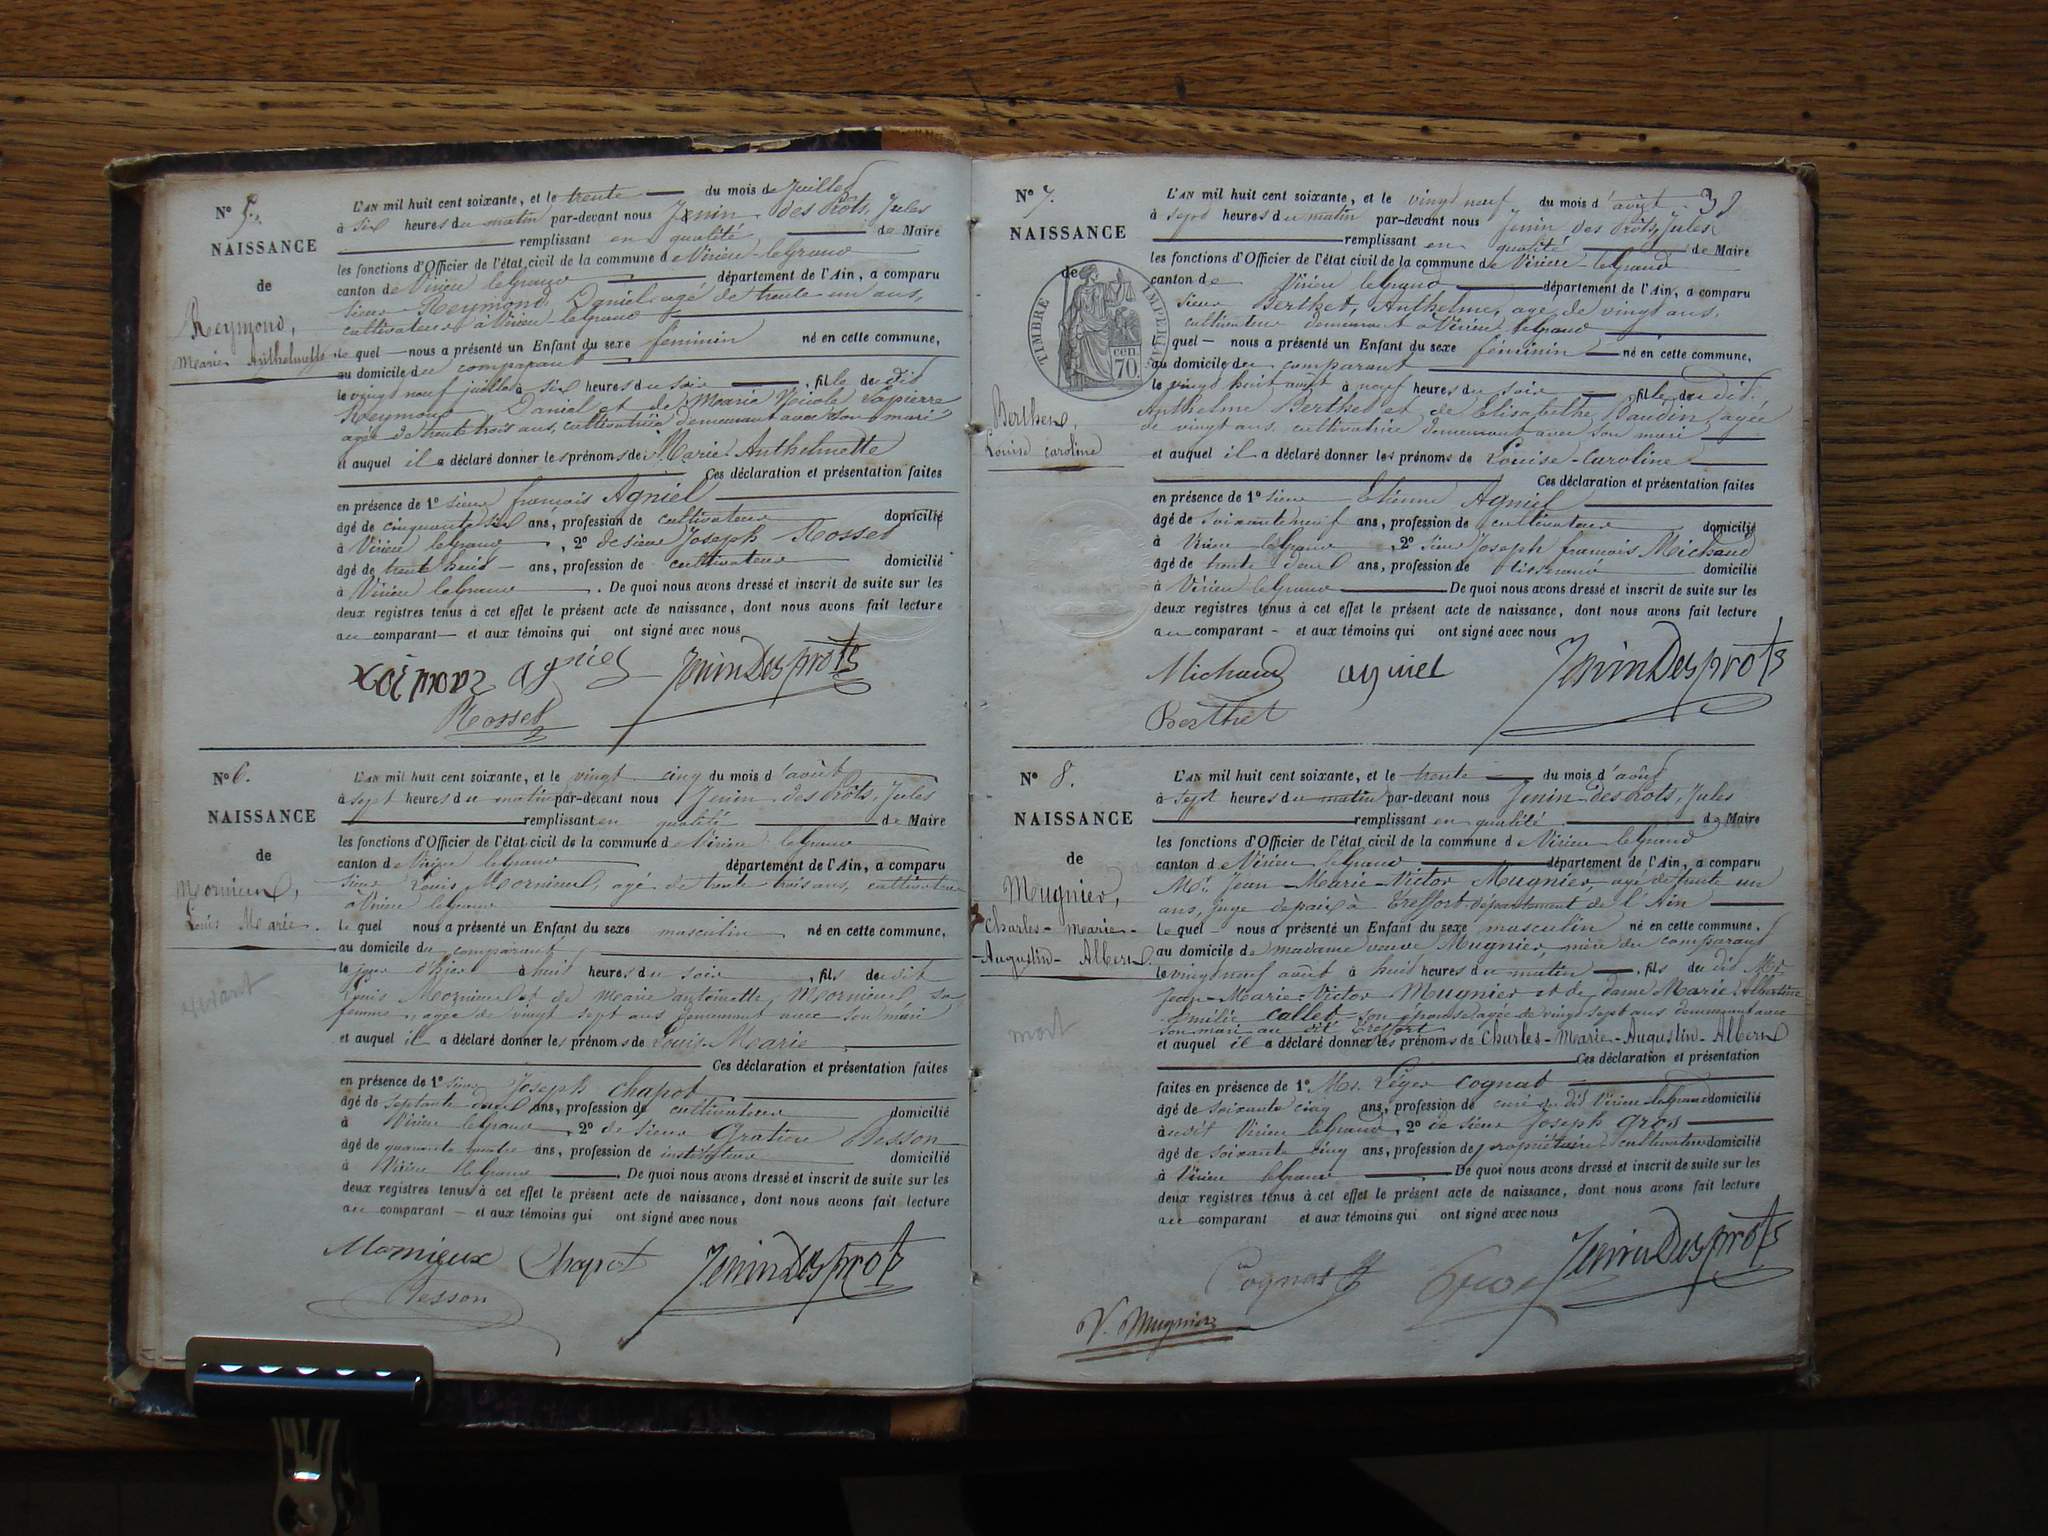 N° 5.
NAISSANCE
de
Reymond,
Marie Anthelmette
L'AN mil huit cent soixante, et le trente du mois de Juillet
à six heures du matin par-devant nous Jenin des Prôts, Jules
remplissant en qualité de Maire
les fonctions d'Officier de l'état civil de la commune de Virieu-leGrand
canton de Virieu leGrand département de l'Ain, a comparu
sieur Reymond Daniel agé de trente un ans,
cultivateur à Virieu-leGrand
le quel nous a présenté un Enfant du sexe feminin né en cette commune,
au domicile du comparant
le vingt neuf juillet à six heures du soir, fille du dit
Reymond Daniel et de Marie Nicole Lapierre
agée de trente trois ans, cultivatrice demeurant avec son mari
et auquel il a déclaré donner les prénoms de Marie Anthelmette
Ces déclaration et présentation faites
en présence de 1° sieur françois Agniel
âgé de cinquante six ans, profession de cultivateur domicilié
à Virieu leGrand, 2° de sieur Joseph Rosset
âgé de trente huit ans, profession de cultivateur domicilié
à Virieu leGrand. De quoi nous avons dressé et inscrit de suite sur les
deux registres tenus à cet effet le présent acte de naissance, dont nous avons fait lecture
au comparant et aux témoins qui ont signé avec nous
agniel JeninDesprots
Rosset
N° 6.
NAISSANCE
de
Mornieux,
Louis Marie.
vivant
L'AN mil huit cent soixante, et le vingt cinq du mois d'août
à sept heures du matin par-devant nous Jenin des Prôts, Jules
remplissant en qualité de Maire
les fonctions d'Officier de l'état civil de la commune de Virieu leGrand
canton de Virieu leGrand département de l'Ain, a comparu
sieur Louis Mornieux, agé de trente trois ans, cultivateur
à Virieu leGrand
le quel nous a présenté un Enfant du sexe masculin né en cette commune,
au domicile du comparant
le jour d'hier à huit heures du soir, fils du dit
Louis Mornieux et de Marie antoinette Mornieux sa
femme, agée de vingt sept ans demeurant avec son mari
et auquel il a déclaré donner les prénoms de Louis-Marie
Ces déclaration et présentation faites
en présence de 1° sieur Joseph Chapot
âgé de septante deux ans, profession de cultivateur domicilié
à Virieu leGrand, 2° de sieur Gratien Besson
âgé de quarante quatre ans, profession de instituteur domicilié
à Virieu leGrand. De quoi nous avons dressé et inscrit de suite sur les
deux registres tenus à cet effet le présent acte de naissance, dont nous avons fait lecture
au comparant et aux témoins qui ont signé avec nous
Mornieux Chapot JeninDesprots
Besson
N° 7.
NAISSANCE
de
TIMBRE IMPERIAL
70 cen
Berthet,
Louise caroline
L'AN mil huit cent soixante, et le vingt neuf du mois d'août
à sept heures du matin par-devant nous Jenin des Prôts, Jules
remplissant en qualité de Maire
les fonctions d'Officier de l'état civil de la commune de Virieu-leGrand
canton de Virieu leGrand département de l'Ain, a comparu
sieur Berthet, Anthelme, agé de vingt ans,
cultivateur demeurant à Virieu leGrand
le quel nous a présenté un Enfant du sexe féminin né en cette commune,
au domicile du comparant
le vingt huit août à neuf heures du soir, fille du dit
Anthelme Berthet et de Elisabethe Baudin agée
de vingt ans, cultivatrice demeurant avec son mari
et auquel il a déclaré donner les prénoms de Louise-Caroline
Ces déclaration et présentation faites
en présence de 1° sieur Etienne Agniel
âgé de soixante neuf ans, profession de cultivateur domicilié
à Virieu leGrand, 2° sieur Joseph françois Michaud
âgé de trente deux ans, profession de tisserand domicilié
à Virieu leGrand De quoi nous avons dressé et inscrit de suite sur les
deux registres tenus à cet effet le présent acte de naissance, dont nous avons fait lecture
au comparant et aux témoins qui ont signé avec nous
Michaud agniel JeninDesprots
Berthet
N° 8.
NAISSANCE
de
Mugnier,
Charles-Marie-
Augustin-Albert.
mort
L'AN mil huit cent soixante, et le trente du mois d'août
à sept heures du matin par-devant nous Jenin des Prots, Jules
remplissant en qualité de Maire
les fonctions d'Officier de l'état civil de la commune de Virieu leGrand
canton de Virieu leGrand département de l'Ain, a comparu
Mr. Jean-Marie-Victor Mugnier, agé de trente un
ans, juge de paix à Treffort département de l'Ain
le quel nous a présenté un Enfant du sexe masculin né en cette commune,
au domicile de madame veuve Mugnier, mère du comparant
le vingt neuf août à huit heures du matin, fils du dit Mr
Jean-Marie-Victor Mugnier et de dame Marie Albertine
Emélie Callet son épouse agée de vingt sept ans demeurant avec
son mari au dit Treffort
et auquel il a déclaré donner les prénoms de Charles-Marie-Augustin-Albert
Ces déclaration et présentation
faites en présence de 1° Mr. Léger Cognat
âgé de soixante cinq ans, profession de curé du dit Virieu leGrand domicilié
au dit Virieu leGrand, 2° de sieur Joseph Gros
âgé de soixante cinq ans, profession de propriétaire cultivateur domicilié
à Virieu leGrand De quoi nous avons dressé et inscrit de suite sur les
deux registres tenus à cet effet le présent acte de naissance, dont nous avons fait lecture
au comparant et aux témoins qui ont signé avec nous
Cognat Gros JeninDesprots
V. Mugnier